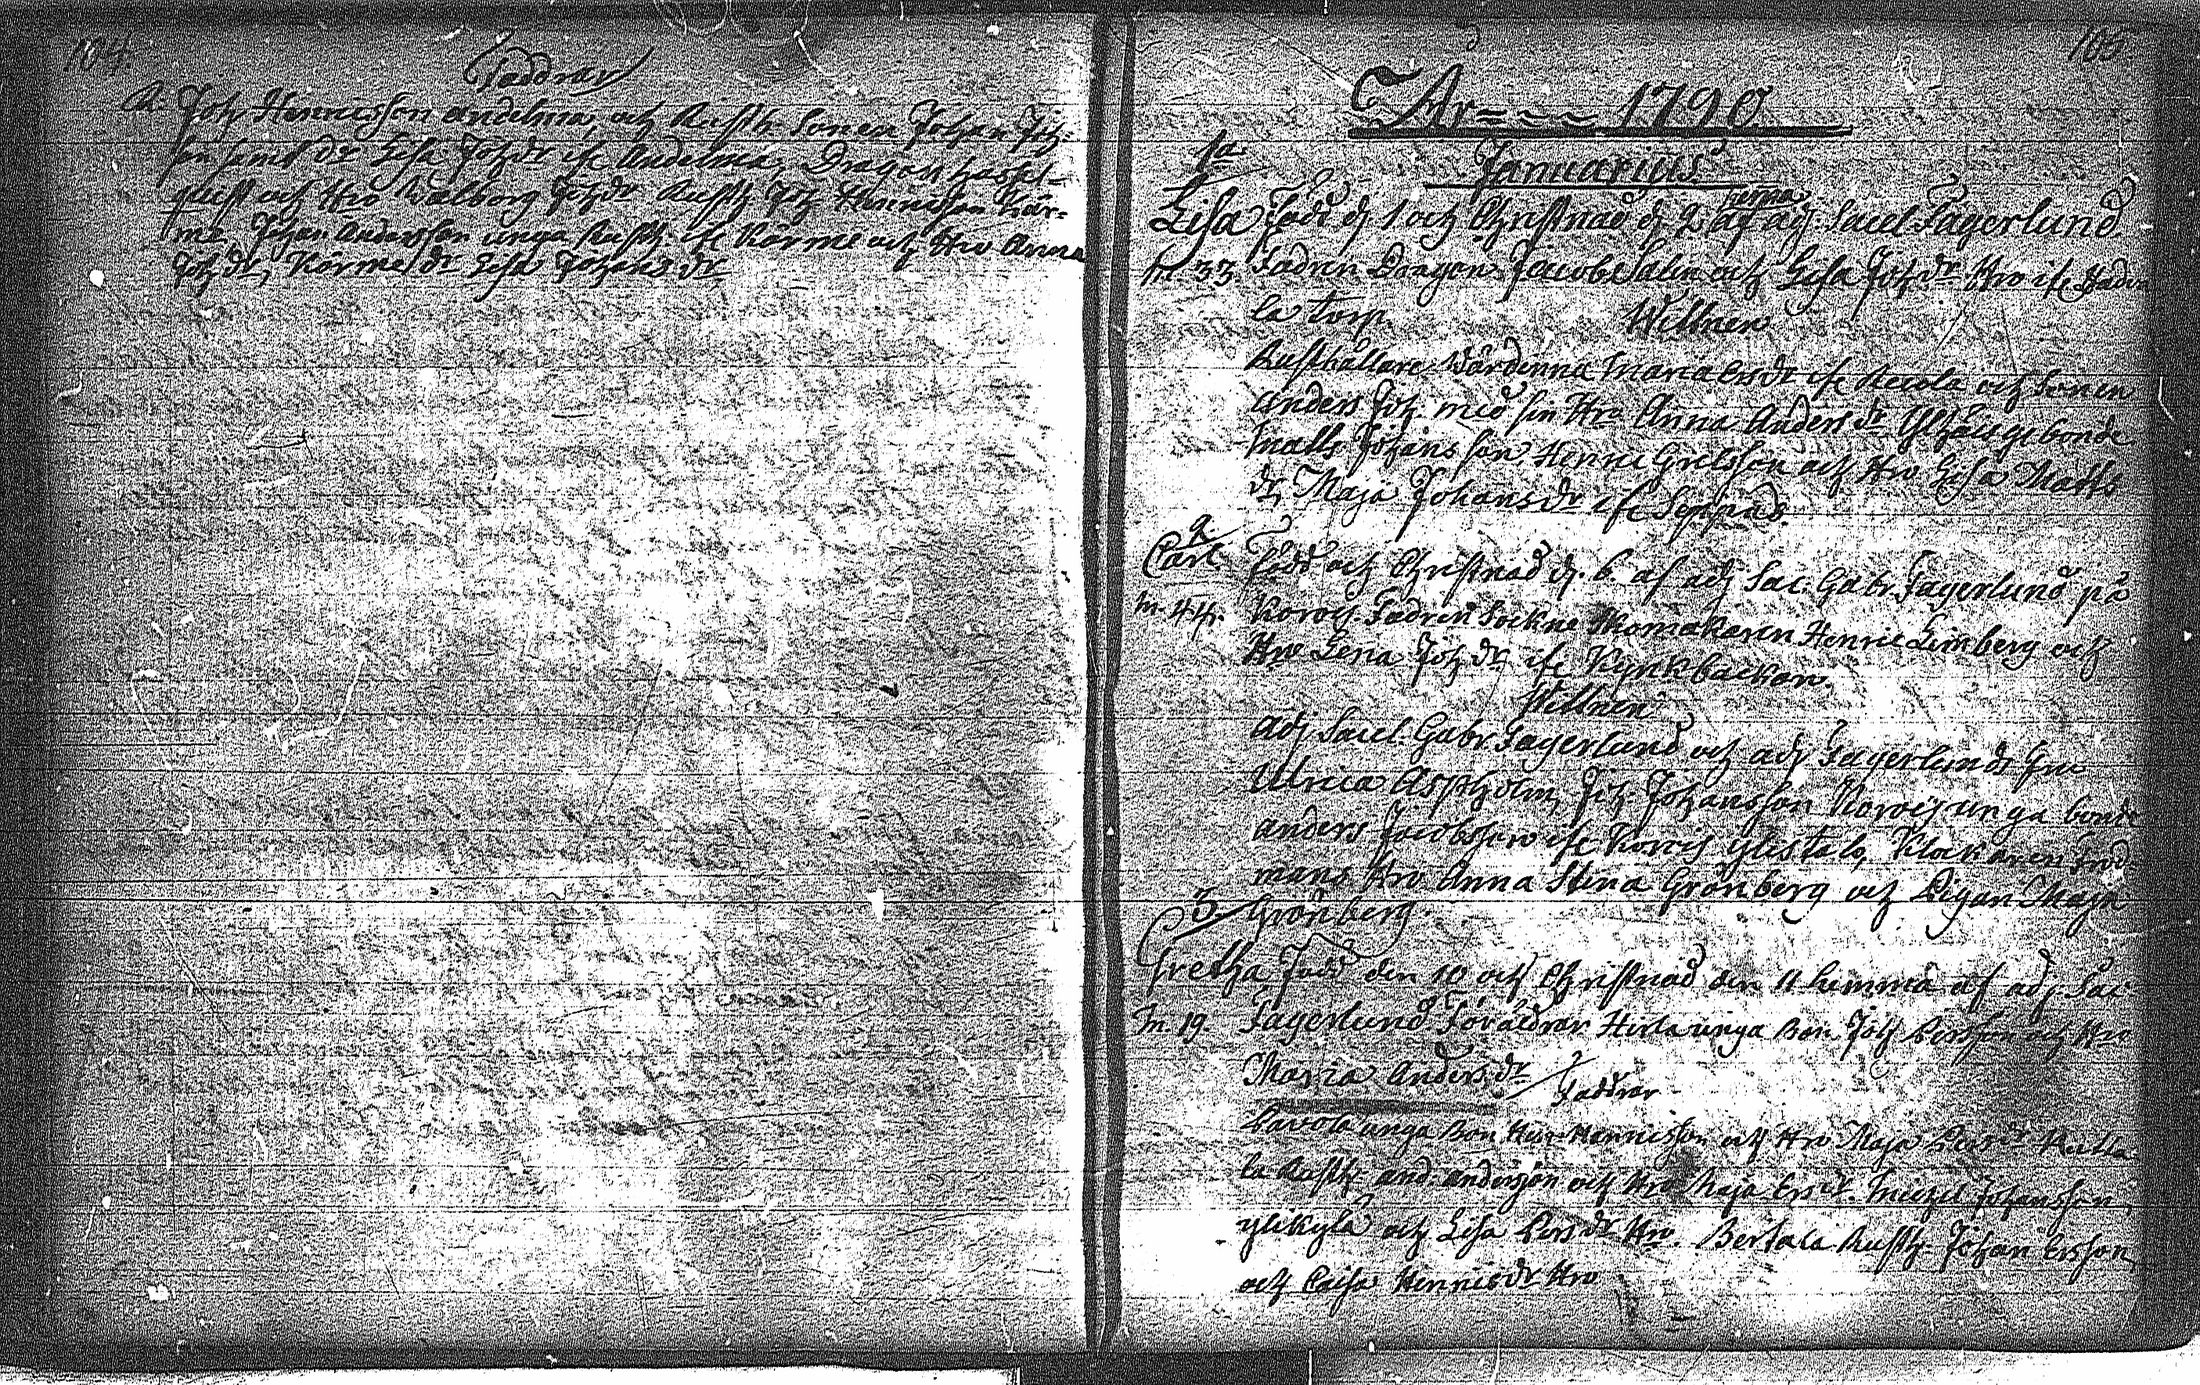 104.
Faddrar
R: Joh Henricsson Andelma, och Rusth. Sonen Johan Joh:
son samt dr Lisa Joh dr ifr Andelma, Dragon Hassel-
quist och Hro Walborg Joh dr Rusth Joh Henricsson Kör-
me, Johan Andersson unga Rusth. ifr Körme och Hro Anna
Joh dr, Körme dr Lisa Johans dr
105.
År - - - 1790
Januarius
1a
Lisa Född d 1 och Christnad d 2 hemma af adj Sacel Fagerlund
m 33 Fadren Dragon Jacob Salin och Lisa Joh dr Hro ifr
la torp.
Wittnen
Rusthållare Wärdinna Maria Ers dr ifr och Sonen
Anders Joh. med sin Hro Anna Anders dr bonde
Matts Johansson Henric Gretsson och Hro Lisa Matts
dr, Maja Johans dr ifr
2
Carl Född och Christnad d. 6. af adj Sac. Gabr. Fagerlund på
m. 44. Korois. Fadren Sockne Skomakaren Henric Limberg och
Hro Lena Joh dr ifr Kyrkbackan.
Wittnen
Adj Sacel. Gabr Fagerlund och adj Fagerlunds fru
Ulrica Aspholm, Joh. Johansson Korois unga bonde
Anders Jacobsson ifr Korois ylistalo, Klockaren Frod
mans Hro Anna Stina Grönberg och Pigan Maja
Grönberg.
3
Gretha Född den 10 och Christnad den 11 hemma af adj. Sac
m. 19. Fagerlund Föräldrar unga Bon. Joh Persson och Hro
Maria Anders dr
Faddrar
unga Bon Henricsson och Hro Maja
la Rusth. And: Andersson och Hro Maja Ers dr. Johansson
ylikylä och Lisa Pers dr Hro. Bertala Rusth. Johan Ersson
och Caisa Henrics dr Hro